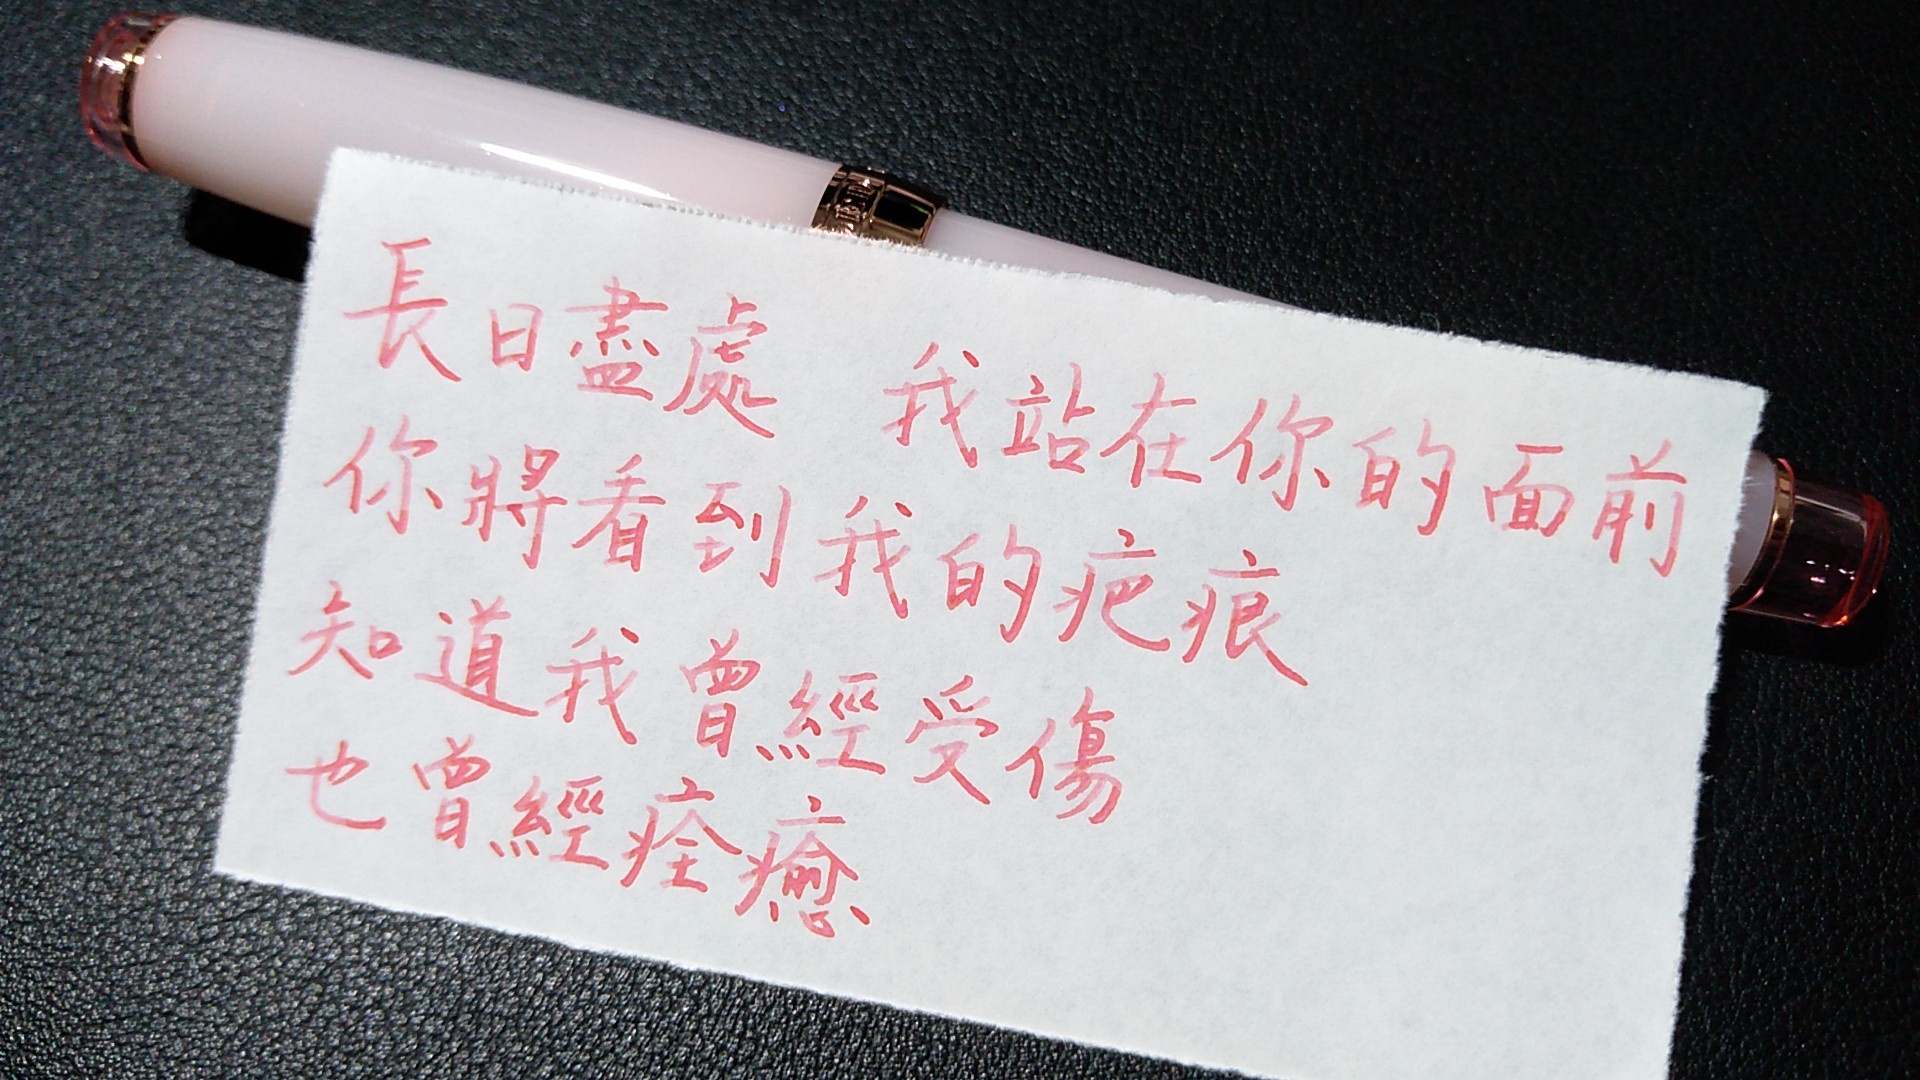 長日盡處 我站在你的面前
你將看到我的疤痕
知道我曾經受傷
也曾經痊癒